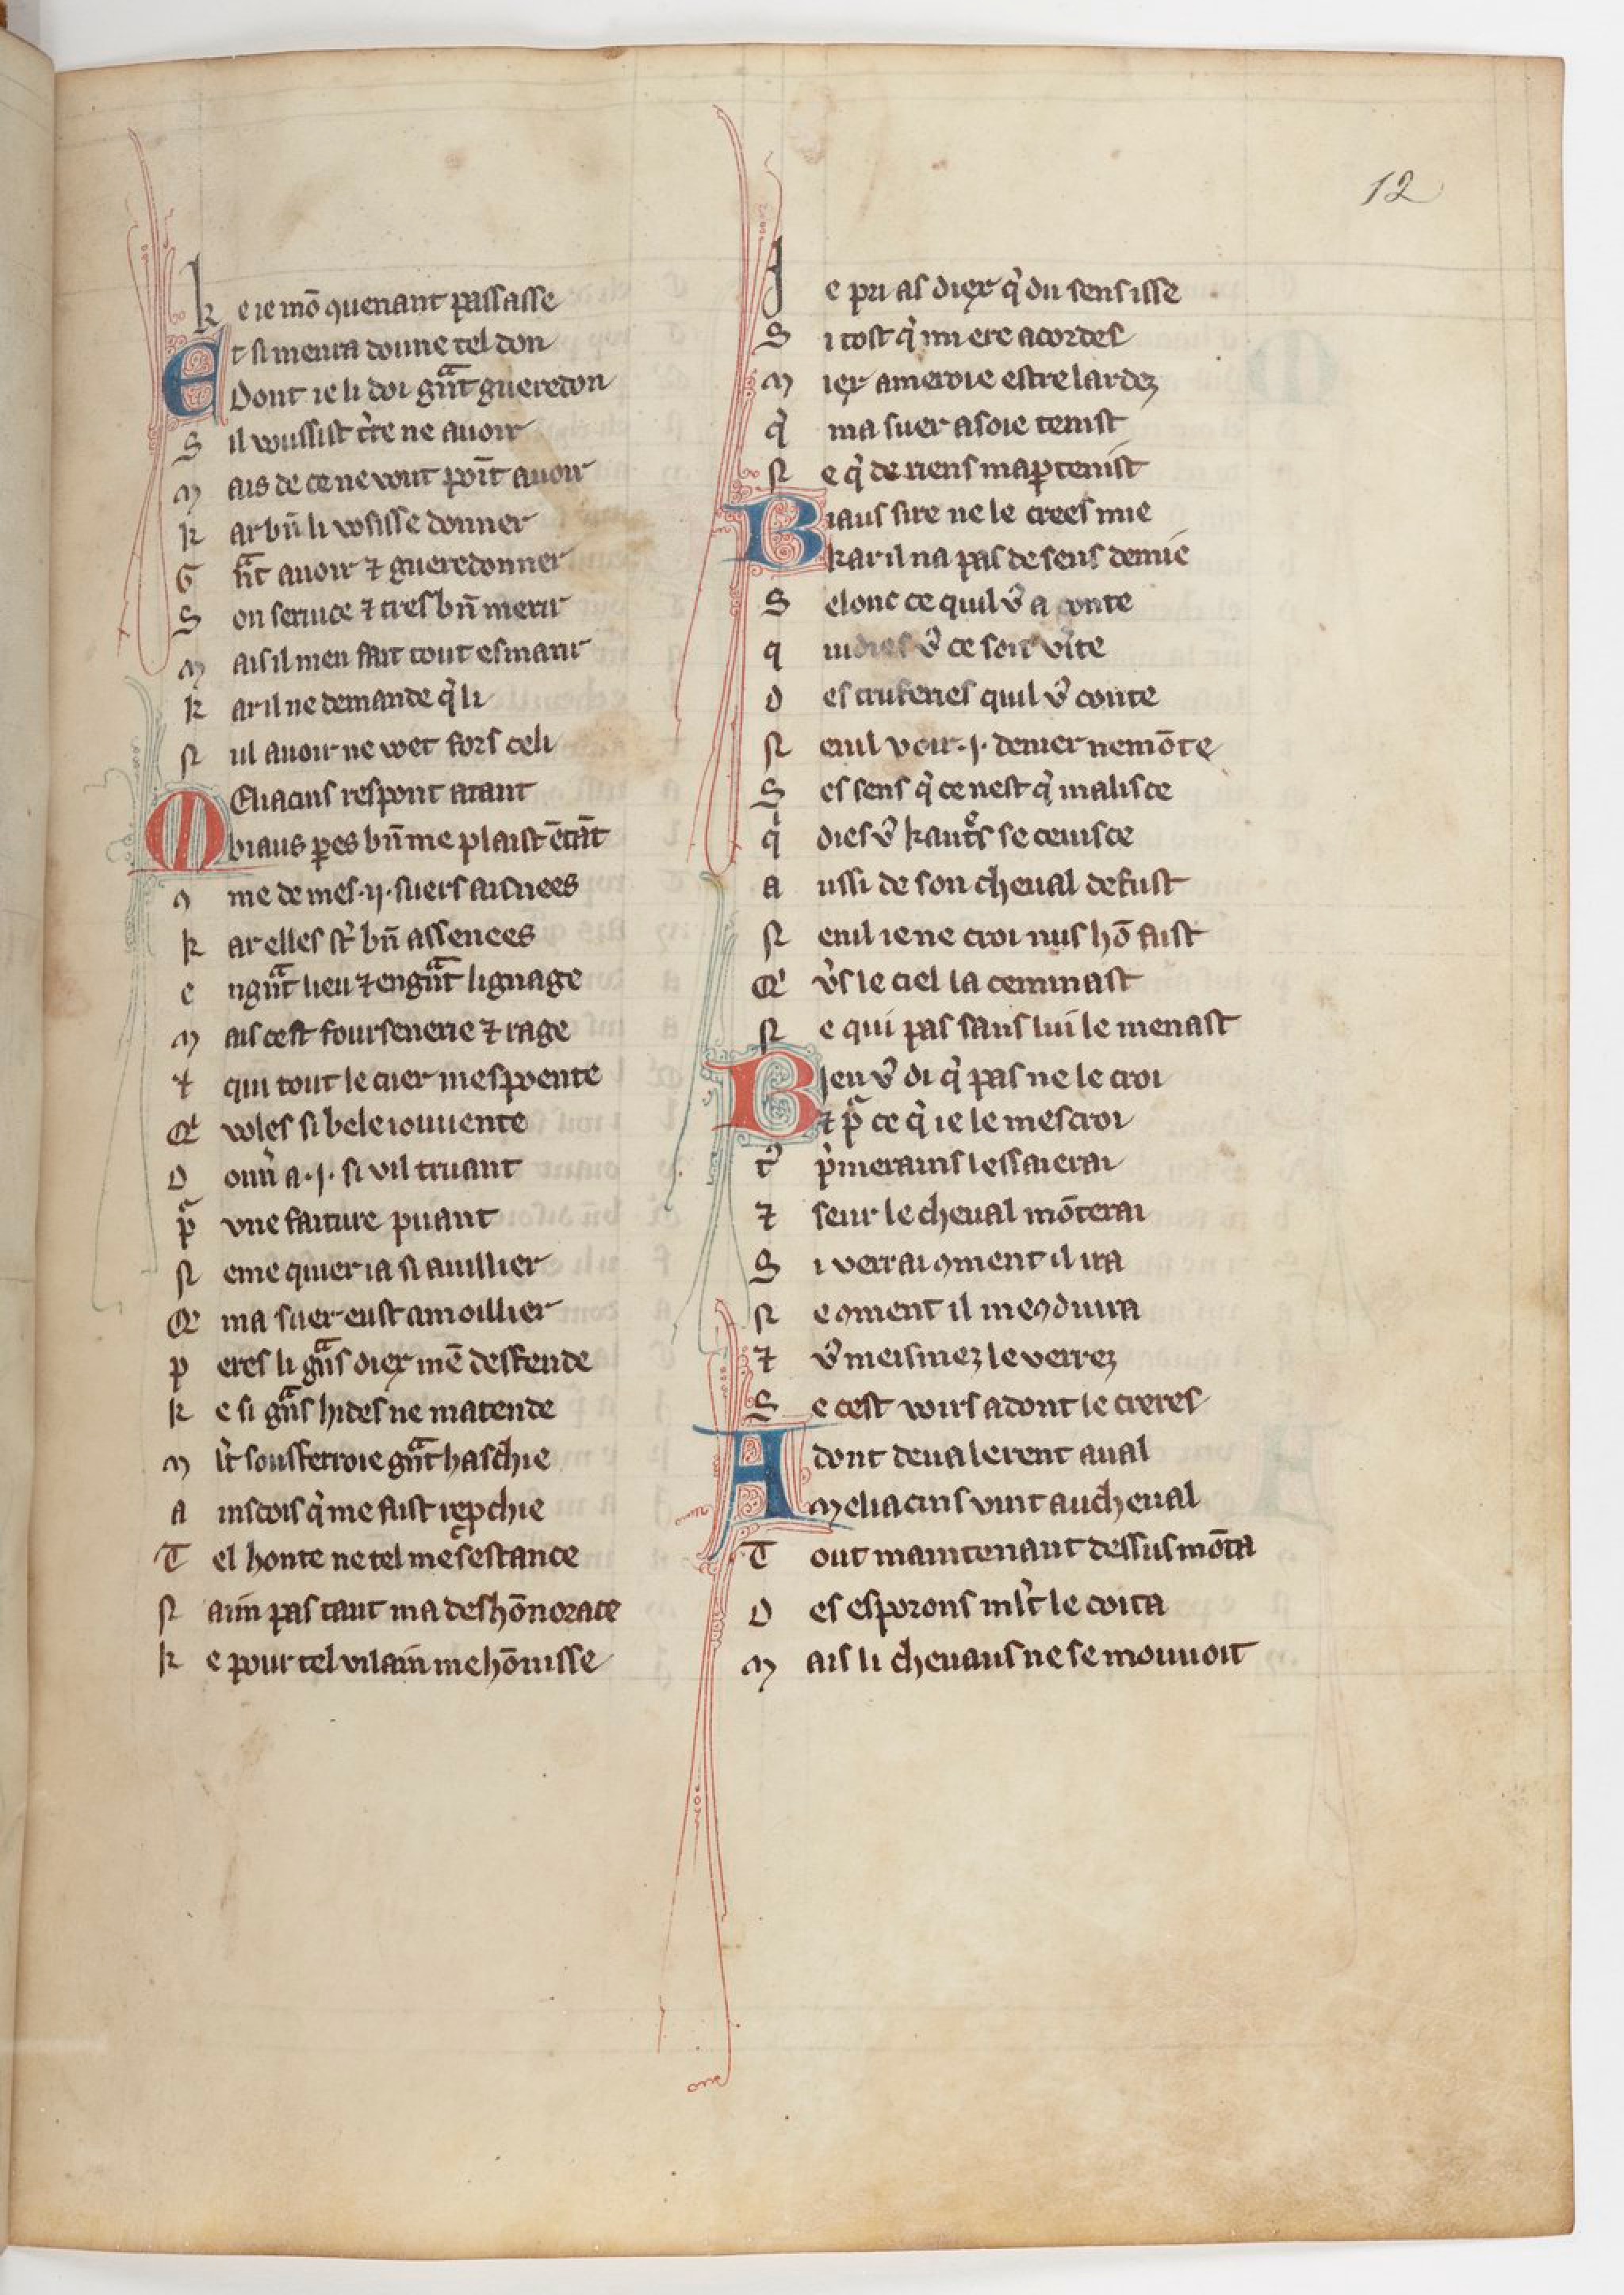 12
k e ie mō ꝯuenant passasse
E t si men ra donne tel don
Dont ie li doi gͣnt gueredon
S il voussist t͛re ne auoir
M ais de ce ne veut poīt auoir
k ar bn̄ li vosisse donner
G ͣnt auoir ⁊ gueredonner
S on seruice ⁊ tres bn̄ merir
M ais il men fait tout esmarir
k ar il ne demande q̓ li
N ul auoir ne vet fors celi
M Eliacins respont atant
biaus peres bn̄ me plaist ētāt
ꝯ me de mes .ij. suers aisnees
k ar elles st̓ bn̄ assenees
e n gͣnt lieu ⁊ en gͣnt lignage
M ais cest foursenerie ⁊ rage
⁊ qui tout le cuer mespoente
Q̓ voles si bele iouuente
D onn̓ a .j. si vil truant
pͬ vne faiture puant
N eme quier ia si auillier
Q̓ ma suer eust a moillier
p eres li gͣns diex mē desfende
k e si gͣns hides ne matende
M lt̓ sousferroie gͣnt haschie
A inscois q̓ me fust rep̱chie
T el honte ne tel mesestance
N aim pas tant ma deshōnorāce
k e pour tel vilain me hōnisse
J e pri as diex q̓ du sens isse
S i tost q̓ mi ere acordes
M iex ameroie estre lardez
q̓ ma suer a soie tenist
N e q̓ de riens map̱tenist
B iaus sire ne le crees mie
kar il na pas de sens demie
S elonc ce quil v̓ a conte
q ui dies v̓ ce soit v̓ite
D es truferies quil v̓ conte
N enil voir .j. denier ne mōte
S es sens q̓ ce nest q̓ malisce
q̓ dies v̓ kautres se cenisce
A ussi de son cheual defust
N enil ie ne croi nus hō fust
Q̓ v̓s le ciel la ceminast
N e qui pas sans lui le menast
B ien v̓ di q̓ pas ne le croi
⁊ pͬ ce q̓ ie le mescroi
t͛ p̓merains lessaierai
⁊ seur le cheual mōterai
S i verrai ꝯment il ira
N e ꝯment il me ꝯduira
⁊ v̓ meismez le verrez
S e cest voirs adont le creres
A dont deualerent aual
Meliacins vint au cheual
T out maintenant dessus mōta
D es esporons mlt̓ le coita
M ais li cheuaus ne se mouuoit